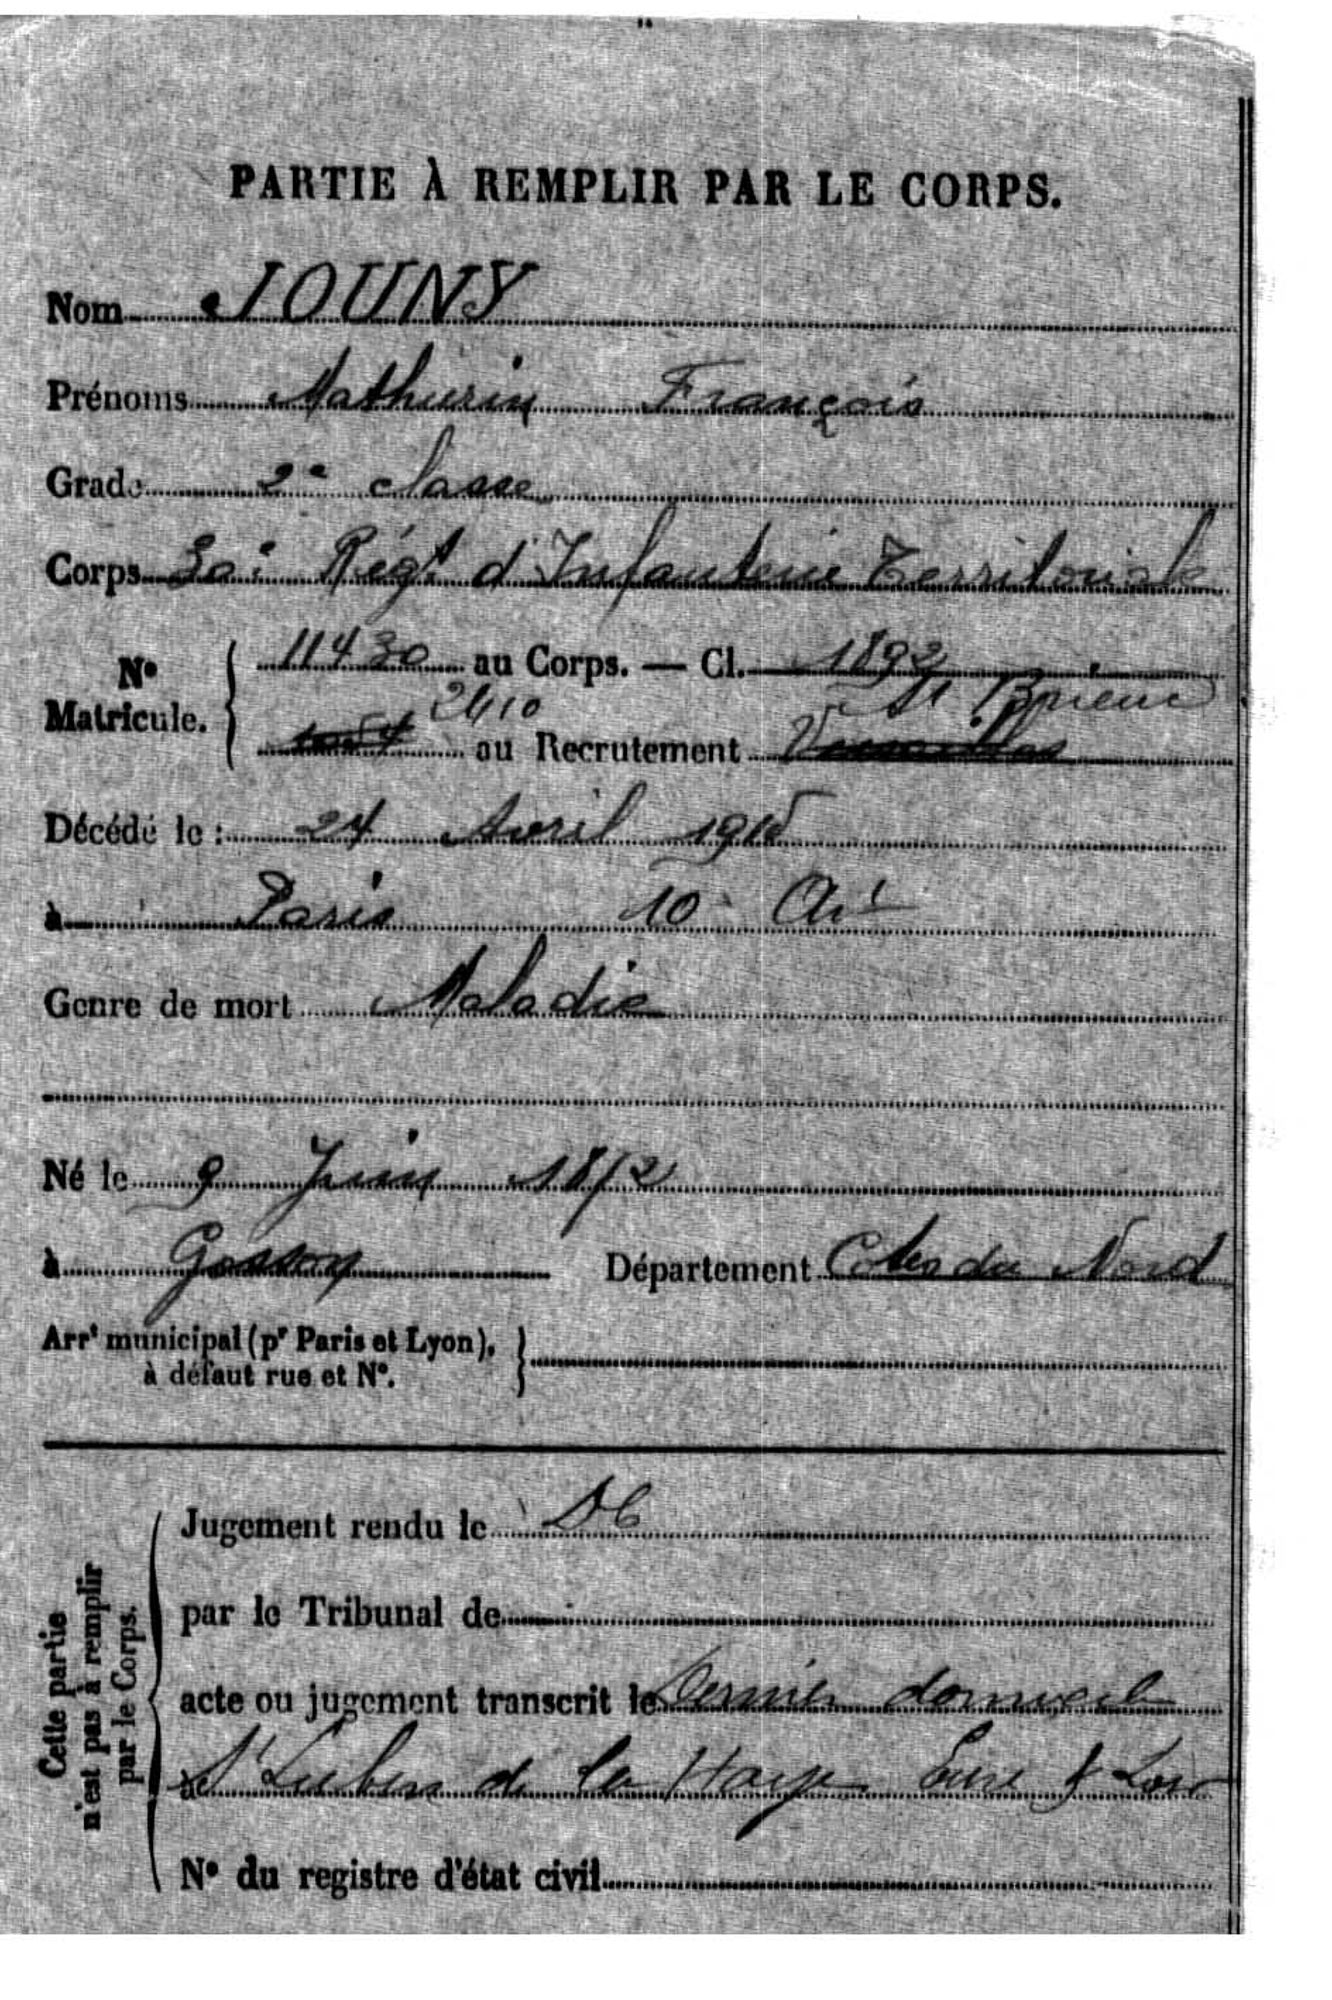 PARTIE À REMPLIR PAR LE CORPS.
Nom JOUNY
Prénoms Mathurin François
Grade 2e classe
Corps 30e Régt d'Infanterie Territoriale
No Matricule. 11430 au Corps. — Cl. 1892
2410 St Brieuc
au Recrutement Versailles
Décédé le : 24 Avril 1915
à Paris 10e Art
Genre de mort Maladie
Né le 9 Juin 1872
à Département Cotes du Nord
Arrt municipal (pr Paris et Lyon),
à défaut rue et No.
Cette partie
n'est pas à remplir
par le Corps.
Jugement rendu le
par le Tribunal de
acte ou jugement transcrit le Dernier domicile
à St Lubin de la Haye Eure & Loir
No du registre d'état civil